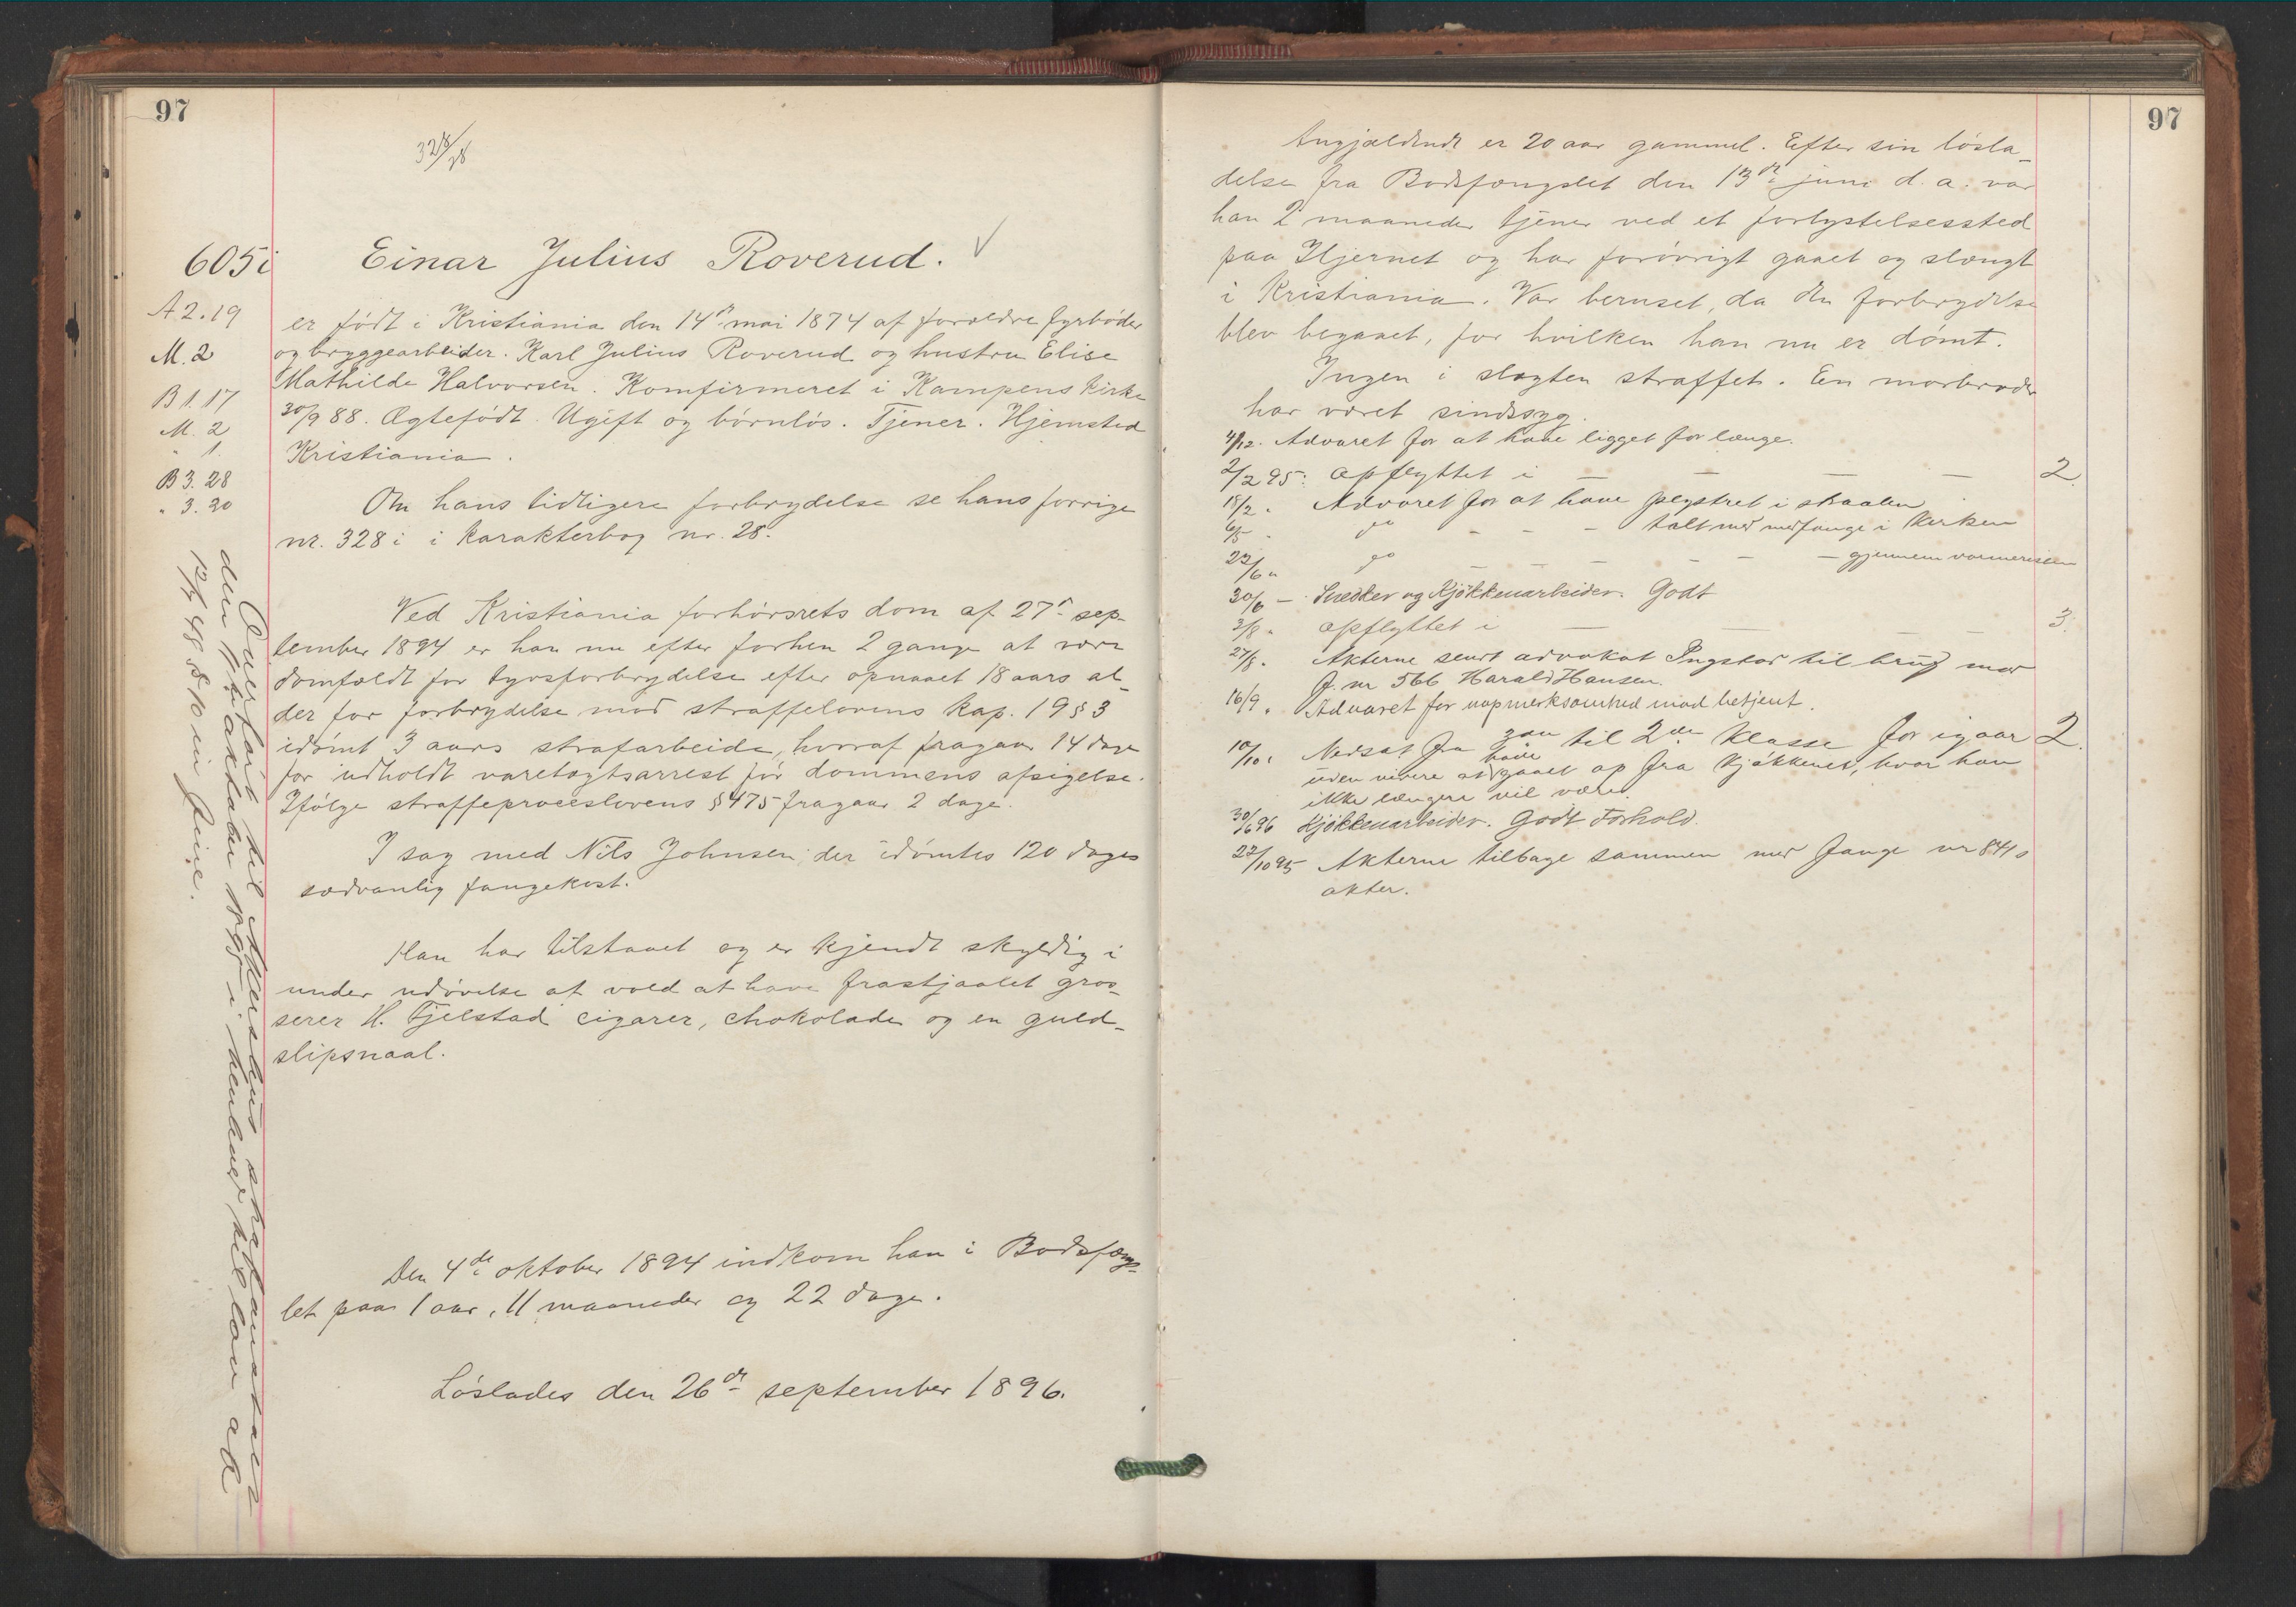 97
328/28
605 i
Einar Julius Roverud.
A 2. 19
M. 2
B 1. 17
M. 2
" 1.
B 3. 28
" 3. 20
er født i Kristiania den 14de mai 1874 af forældre fyrbøder
og bryggearbeider. Karl Julius Roverud og hustru Elise
Mathilde Halvorsen. Komfirmeret i Kampens kirke
30/9 88. Ægtefødt. Ugift og børnløs. Tjener. Hjemsted
Kristiania.
Om hans tidligere forbrydelse se hans forrige
nr. 328 i i karakterbog nr. 28.
Ved Kristiania forhørsrets dom af 27de sep-
tember 1894 er han nu efter forhen 2 gange at være
domfældt for tyvsforbrydelse efter opnaaet 18 aars al-
der for forbrydelse mod straffelovens kap. 19 § 3
idømt 3 aars strafarbeide, hvoraf fragaar 14 dage
for udholdt varetægtsarrest før dommens afsigelse.
Ifølge straffeproceslovens § 475 fragaar 2 dage.
I sag med Nils Johnsen, der idømtes 120 dages
sædvanlig fangekost.
Han har tilstaaet og er kjendt skyldig i
under udøvelse af vold at have frastjaalet gros-
serer H. Fjelstad cigarer, chokolade og en guld-
slipsnaal.
Den 4de oktober 1894 indkom han i Bodsfæng-
let paa 1 aar, 11 maaneder og 22 dage.
Løslades den 26de september 1896.
Overført til Akershus strafanstalt
den i henhold til lov af
in fine.
97
Angjældende er 20 aar gammel. Efter sin løsla-
delse fra Bodsfængslet den 13de juni d. a. var
han 2 maaneder tjener ved et forlystelsessted
paa Hjernet og har forøvrigt gaaet og slængt
i Kristiania. Var beruset, da den forbrydelse
blev begaaet, for hvilken han nu er dømt.
Ingen i slægten straffet. En morbroder
har været sindssyg.
4/12. Advaret for at have ligget for længe.
2/2 95: Opflyttet i — — — — 2
18/2 " Advaret for at have plystret i straalen
6/5 " do - - - talt med medfange i kirken
22/6 " do - - - - - - gjennem varmeristen
30/6 — Snedker og Kjøkkenarbeider. Godt
3/8 " Opflyttet i — — — — 3.
27/8 " Akterne sendt advokat Ingstad til brug mod
f. nr 566 Harald Hansen.
16/9 " Advaret for uopmerksomhed mod betjent.
10/10 " Nedsat fra 3die til 2den klasse for igaar 2.
uden videre at have gaaet op fra kjøkkenet, hvor han
ikke længere vil være.
30/6 96 Kjøkkenarbeider. Godt Forhold.
22/10 95 Akterne tilbage sammen med fange nr 841s
akter.